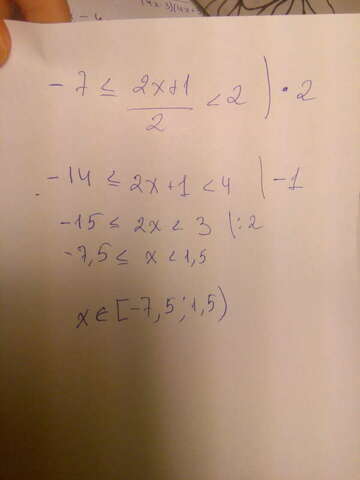 -7 ≤ (2x+1)/2 < 2 | · 2
-14 ≤ 2x+1 < 4 | -1
-15 ≤ 2x < 3 | :2
-7,5 ≤ x < 1,5
x ∈ [-7,5 ; 1,5)